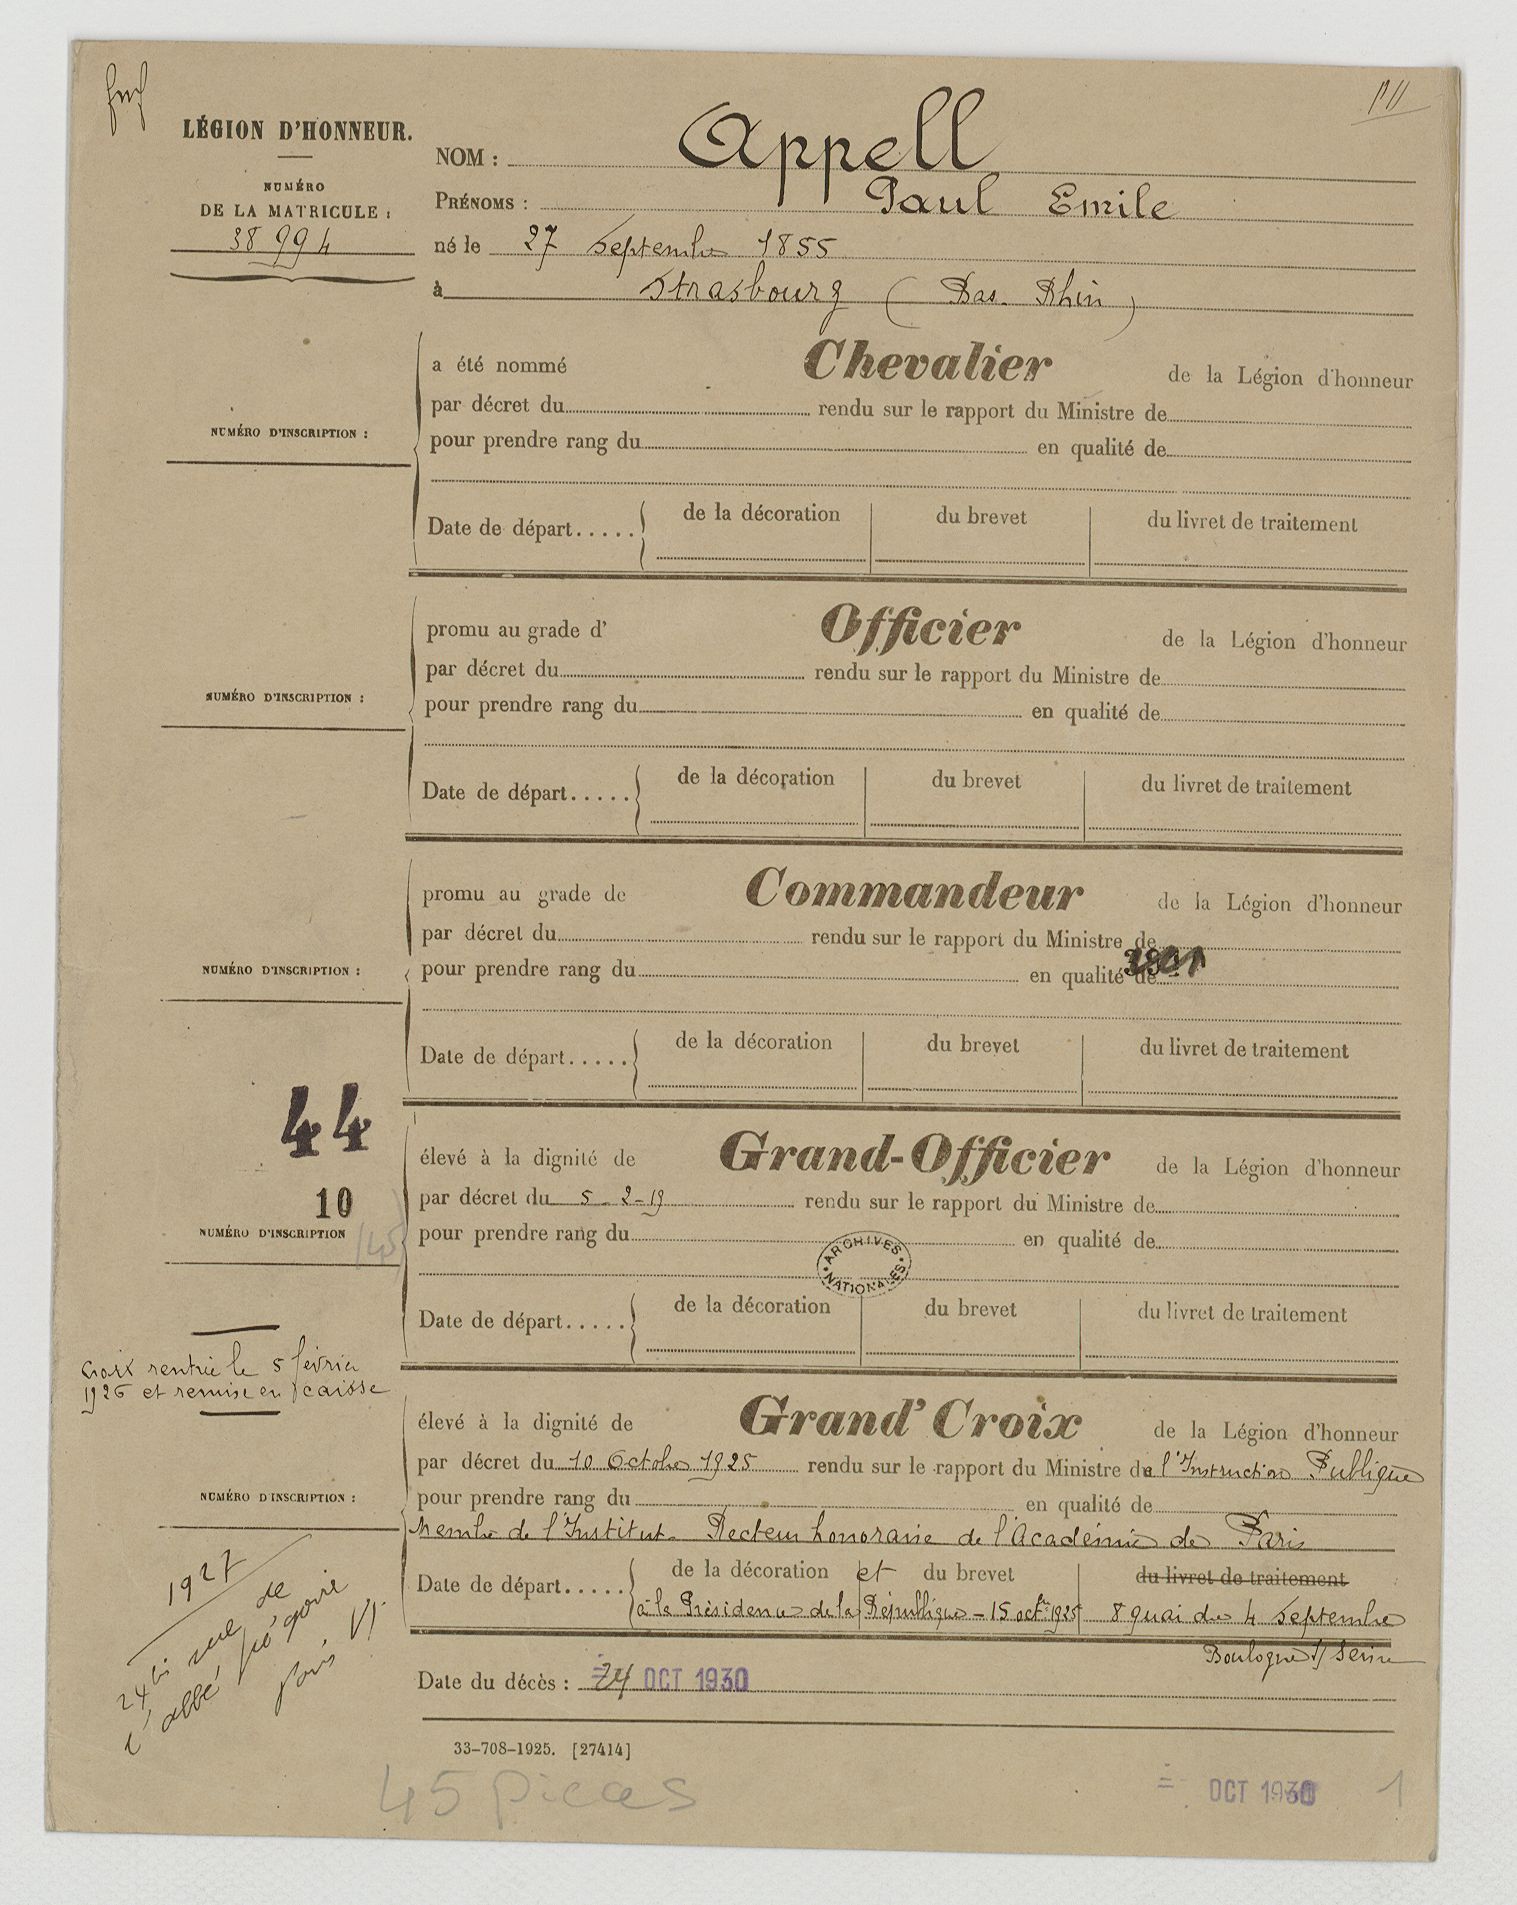 LÉGION D'HONNEUR.
NUMÉRO
DE LA MATRICULE :
38994
NOM : Appell
PRÉNOMS : Paul Emile
né le 27 Septembre 1855
à Strasbourg (Bas. Rhin)
a été nommé Chevalier de la Légion d'honneur
par décret du rendu sur le rapport du Ministre de
NUMÉRO D'INSCRIPTION :
pour prendre rang du en qualité de
Date de départ..... de la décoration du brevet du livret de traitement
promu au grade d' Officier de la Légion d'honneur
par décret du rendu sur le rapport du Ministre de
NUMÉRO D'INSCRIPTION :
pour prendre rang du en qualité de
Date de départ..... de la décoration du brevet du livret de traitement
promu au grade de Commandeur de la Légion d'honneur
par décret du rendu sur le rapport du Ministre de
NUMÉRO D'INSCRIPTION :
pour prendre rang du en qualité de
Date de départ..... de la décoration du brevet du livret de traitement
44
élevé à la dignité de Grand-Officier de la Légion d'honneur
10
par décret du 5-2-19 rendu sur le rapport du Ministre de
NUMÉRO D'INSCRIPTION
pour prendre rang du en qualité de
ARCHIVES NATIONALES
Date de départ..... de la décoration du brevet du livret de traitement
Croix rentrée le 5 février
1926 et remise en caisse
élevé à la dignité de Grand'Croix de la Légion d'honneur
par décret du 10 Octobre 1925 rendu sur le rapport du Ministre de l'Instruction Publique
NUMÉRO D'INSCRIPTION :
pour prendre rang du en qualité de
Membre de l'Institut. Recteur honoraire de l'Académie de Paris
Date de départ..... de la décoration et du brevet du livret de traitement
à la Présidence de la République - 15 octbre 1925 8 quai du 4 Septembre
Boulogne s/ Seine
1927
24 bis rue de
l'abbé Grégoire
Paris VI
Date du décès : 24 OCT 1930
33-708-1925. [27414]
45 pieces
OCT 1930
1